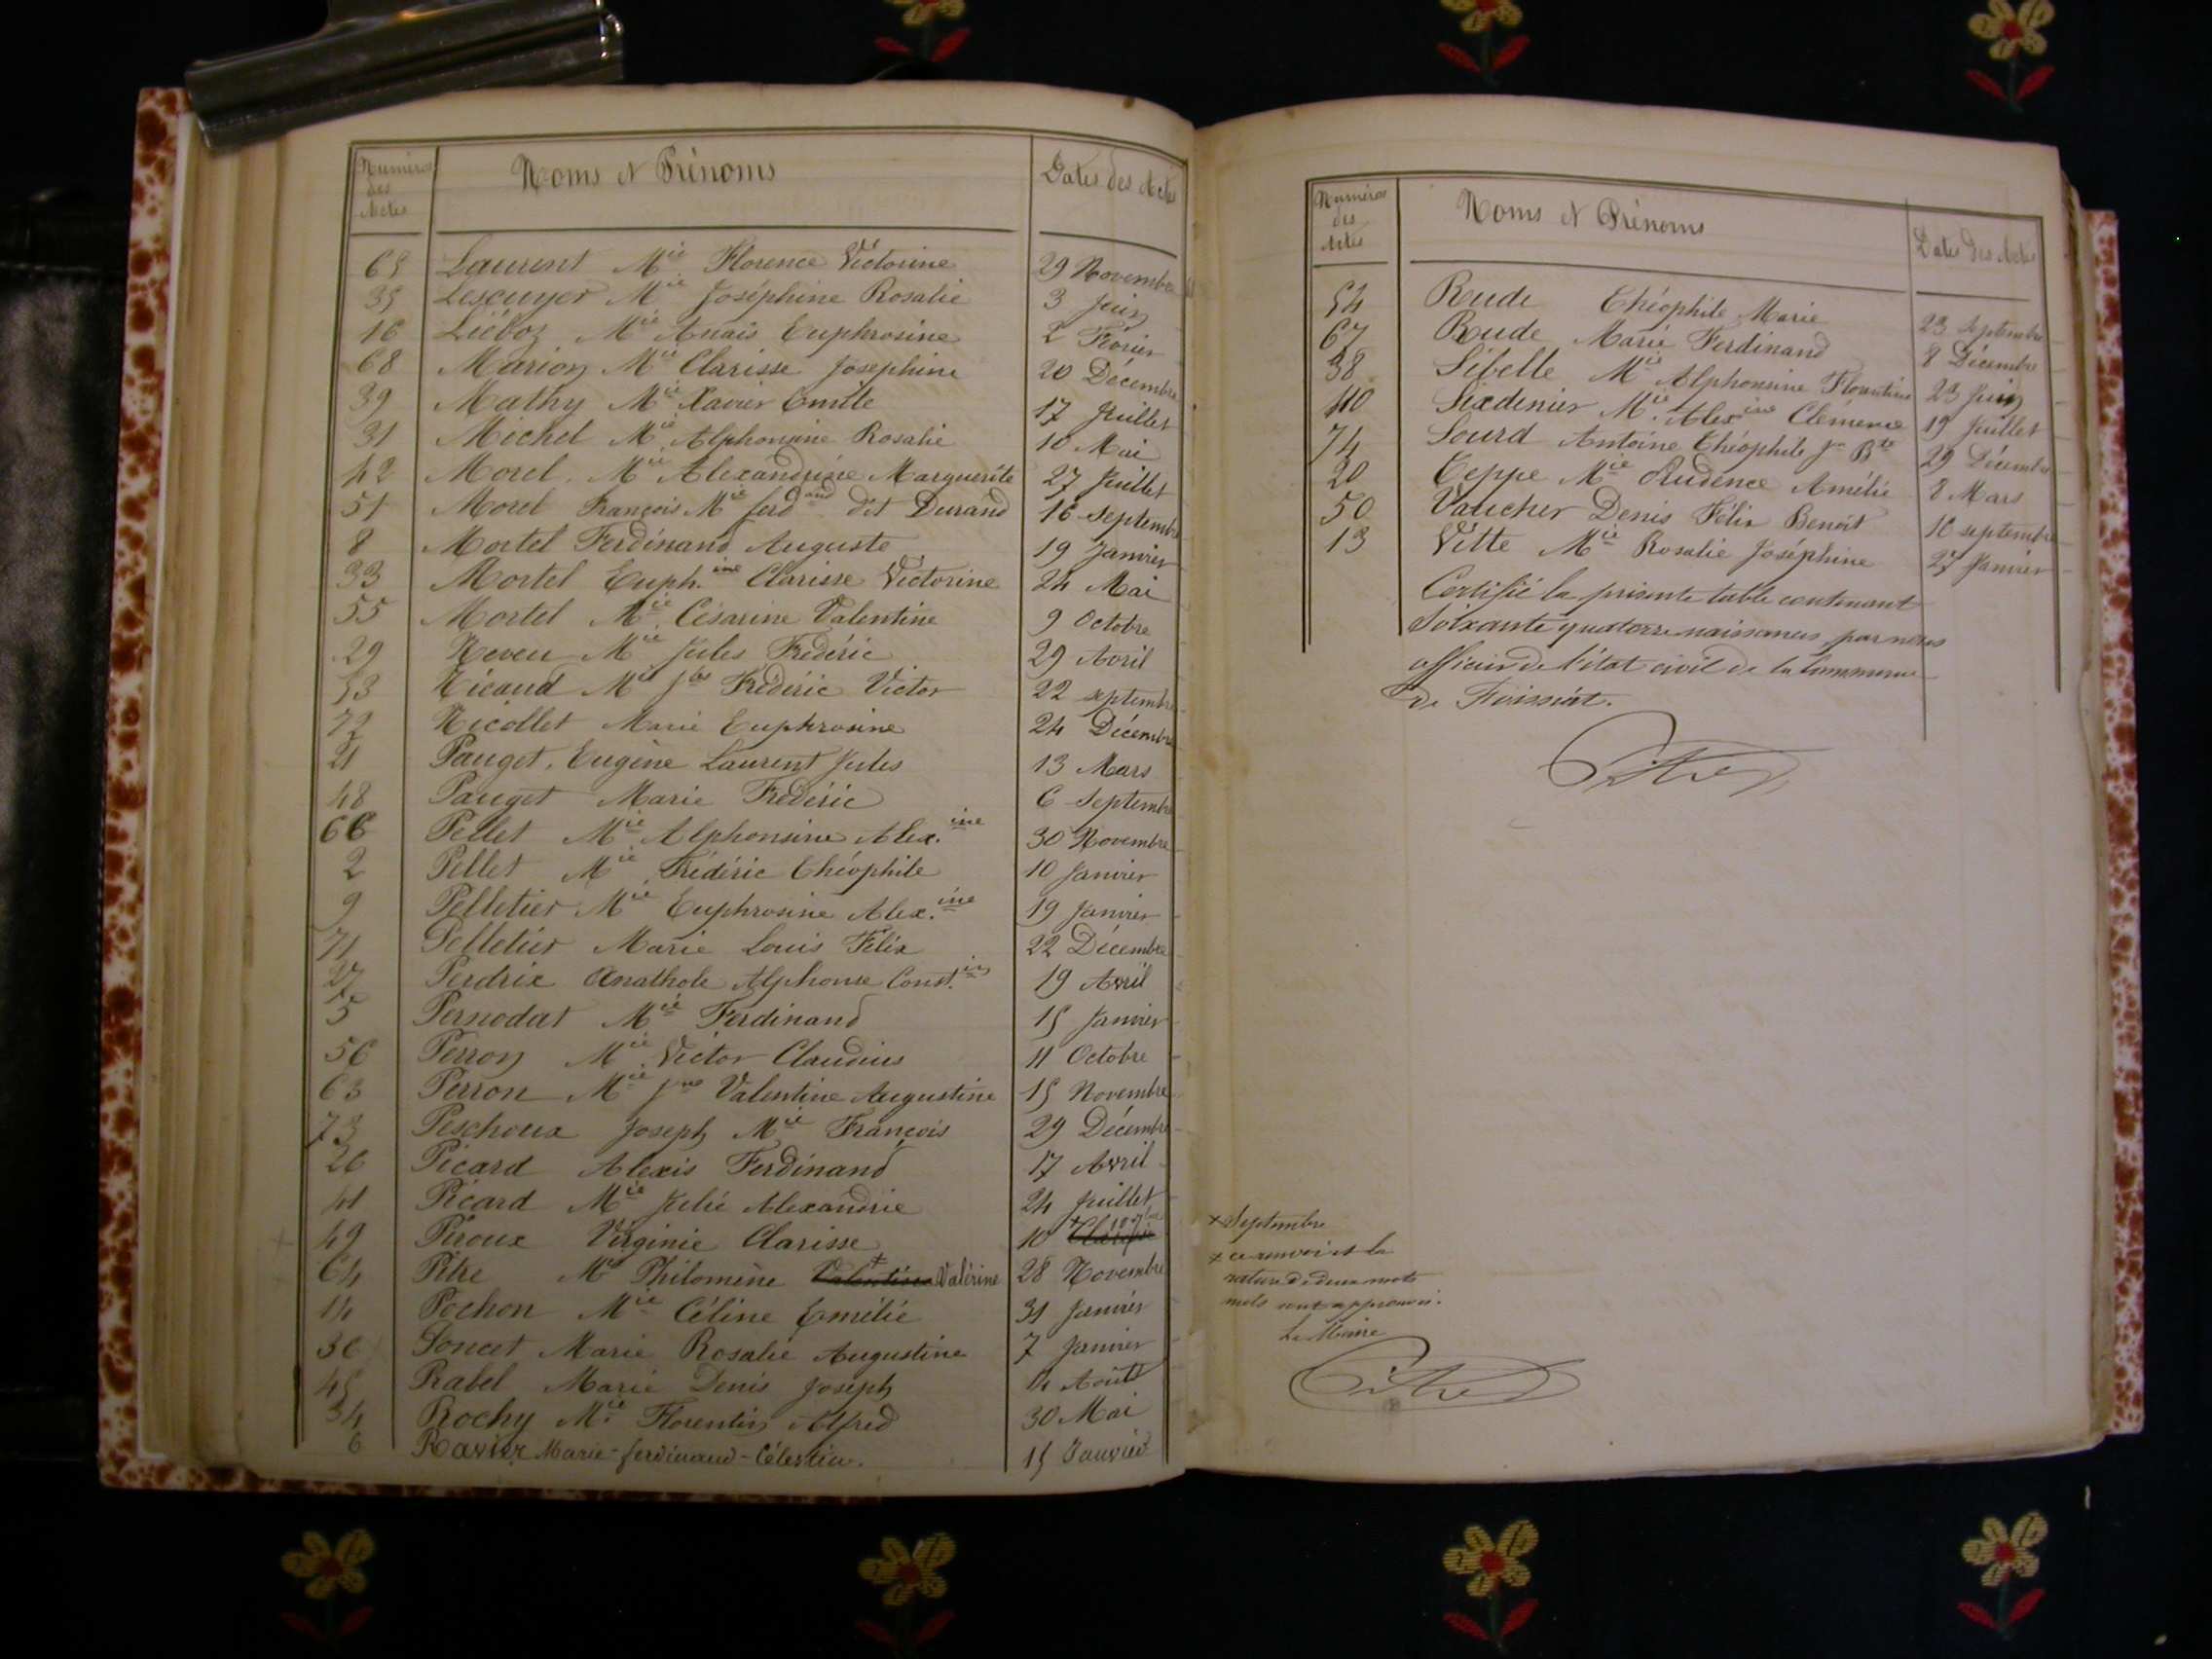 Numéros des Actes Noms et Prénoms Dates des Actes
65 Laurent Mie Florence Victorine 29 Novembre
35 Lescuyer Mie Joséphine Rosalie 3 Juin
16 Liéboz Mie Anaïs Euphrosine 2 Février
68 Marion Mie Clarisse Josephine 20 Décembre
39 Mathy Mie Xavier Emile 17 Juillet
31 Michel Mie Alphonsine Rosalie 10 Mai
42 Morel Mie Alexandrine Marguerite 27 Juillet
51 Morel François Mie ferdand dit Durand 16 Septembre
8 Mortel Ferdinand Auguste 19 Janvier
33 Mortel Euph.ine Clarisse Victorine 24 Mai
55 Mortel Mie Césarine Valentine 9 Octobre
29 Neveu Mie Jules Frédéric 29 Avril
53 Nicaud Mie Frédéric Victor 22 septembre
72 Nicollet Marie Euphrosine 24 Décembre
21 Pauget, Eugène Laurent Jules 13 Mars
48 Pauget Marie Frédéric 6 Septembre
66 Pellet Mie Alphonsine Alex.ine 30 Novembre
2 Pellet Mie Frédéric Théophile 10 Janvier
9 Pelletier Mie Euphrosine Alex.ine 19 Janvier
71 Pelletier Marie Louis Félix 22 Décembre
27 Perdrix Anathole Alphonse Const.in 19 Avril
5 Pernodat Mie Ferdinand 15 Janvier
56 Perron Mie Victor Claudius 11 Octobre
63 Perron Mie Jne Valentine Augustine 15 Novembre
73 Peschoux Joseph Mie François 29 Décembre
26 Picard Alexis Ferdinand 17 Avril
41 Picard Mie Julie Alexandrie 24 Juillet
49 Piroux Virginie Clarisse 10 + 10 7bre
64 Pitre Mie Philomène + Valentine Valérine 28 Novembre
14 Pochon Mie Céline Emélie 31 Janvier
36 Poncet Marie Rosalie Augustine 7 Janvier
45 Rabel Marie Denis Joseph 14 Août
34 Rochy Mie Florentin Alfred 30 Mai
6 Ravier Marie-ferdinand-Célestin. 15 Janvier
Numéros des Actes Noms et Prénoms Dates des Actes
54 Rude Théophile Marie 23 Septembre
67 Rude Marie Ferdinand 8 Décembre
38 Sibelle Mie Alphonsine Florentine 23 Juin
40 Sixdenier Mie Alexine Clémence 19 Juillet
74 Sourd Antoine Théophile Jn Bte 29 Décembre
20 Teppe Mie Prudence Amélie 8 Mars
50 Vaucher Denis Félix Benoît 16 septembre
13 Vitte Mie Rosalie Joséphine 27 Janvier
Certifié la présente table contenant
Soixante quatorze naissances par nous
officier de l'état civil de la Commune
de Foissiat.
Pitre
+ Septembre
+ ce renvoi et la
rature de deux mots
mots sont approuvés.
Le Maire
Pitre